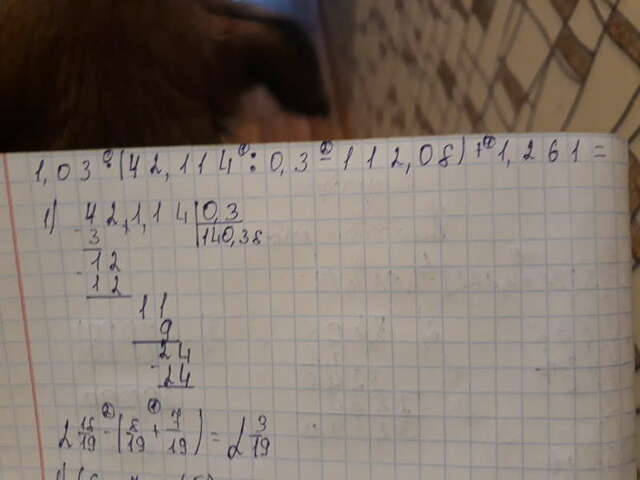 1,03·(42,114:0,3-112,08)+1,261=
1) 42,1,14 |0,3
- 3 |140,38
12
- 12
11
9
24
- 24
2 15/19 - (5/19 + 7/19) = 2 3/19